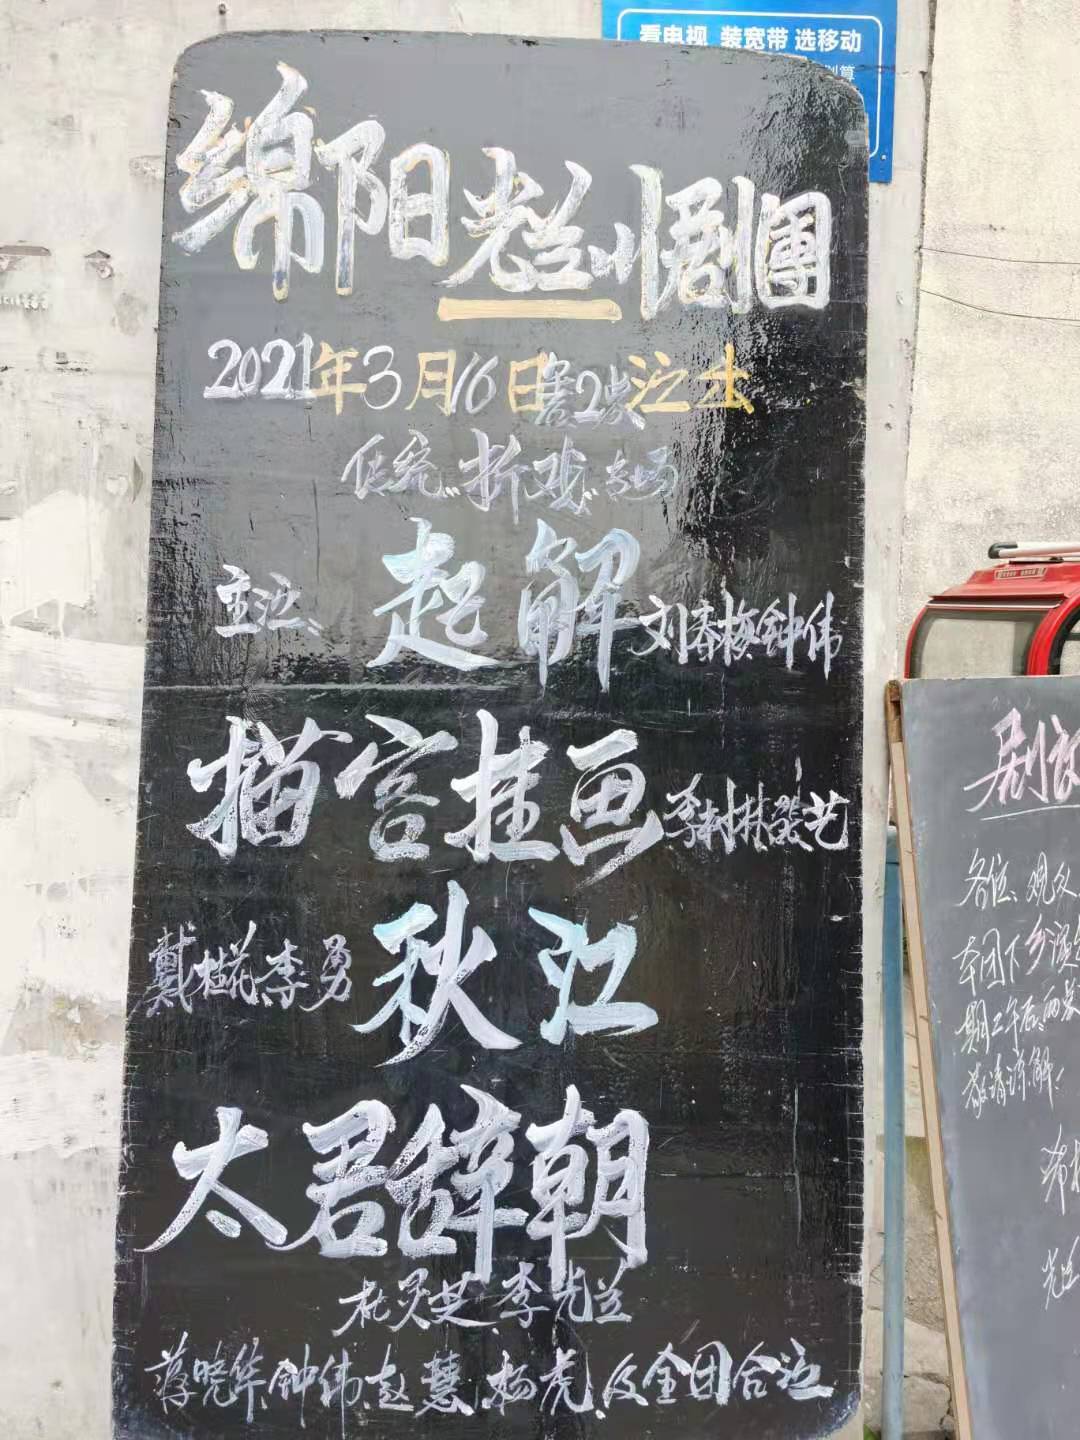 看电视 装宽带 选移动
绵阳光兰川剧團
2021年3月16日周2 演出
传统"折戏"专场
主演、起解 刘春梅、钟伟
描容挂画 李树林、邵艺
戴桂花、李勇 秋江
太君辞朝
杜灵芝、李光兰
蒋晓华、钟伟、赵慧、杨虎、及全团合演
剧
各位、观众
本团下乡演
期二午后、
敬请谅解!
光兰